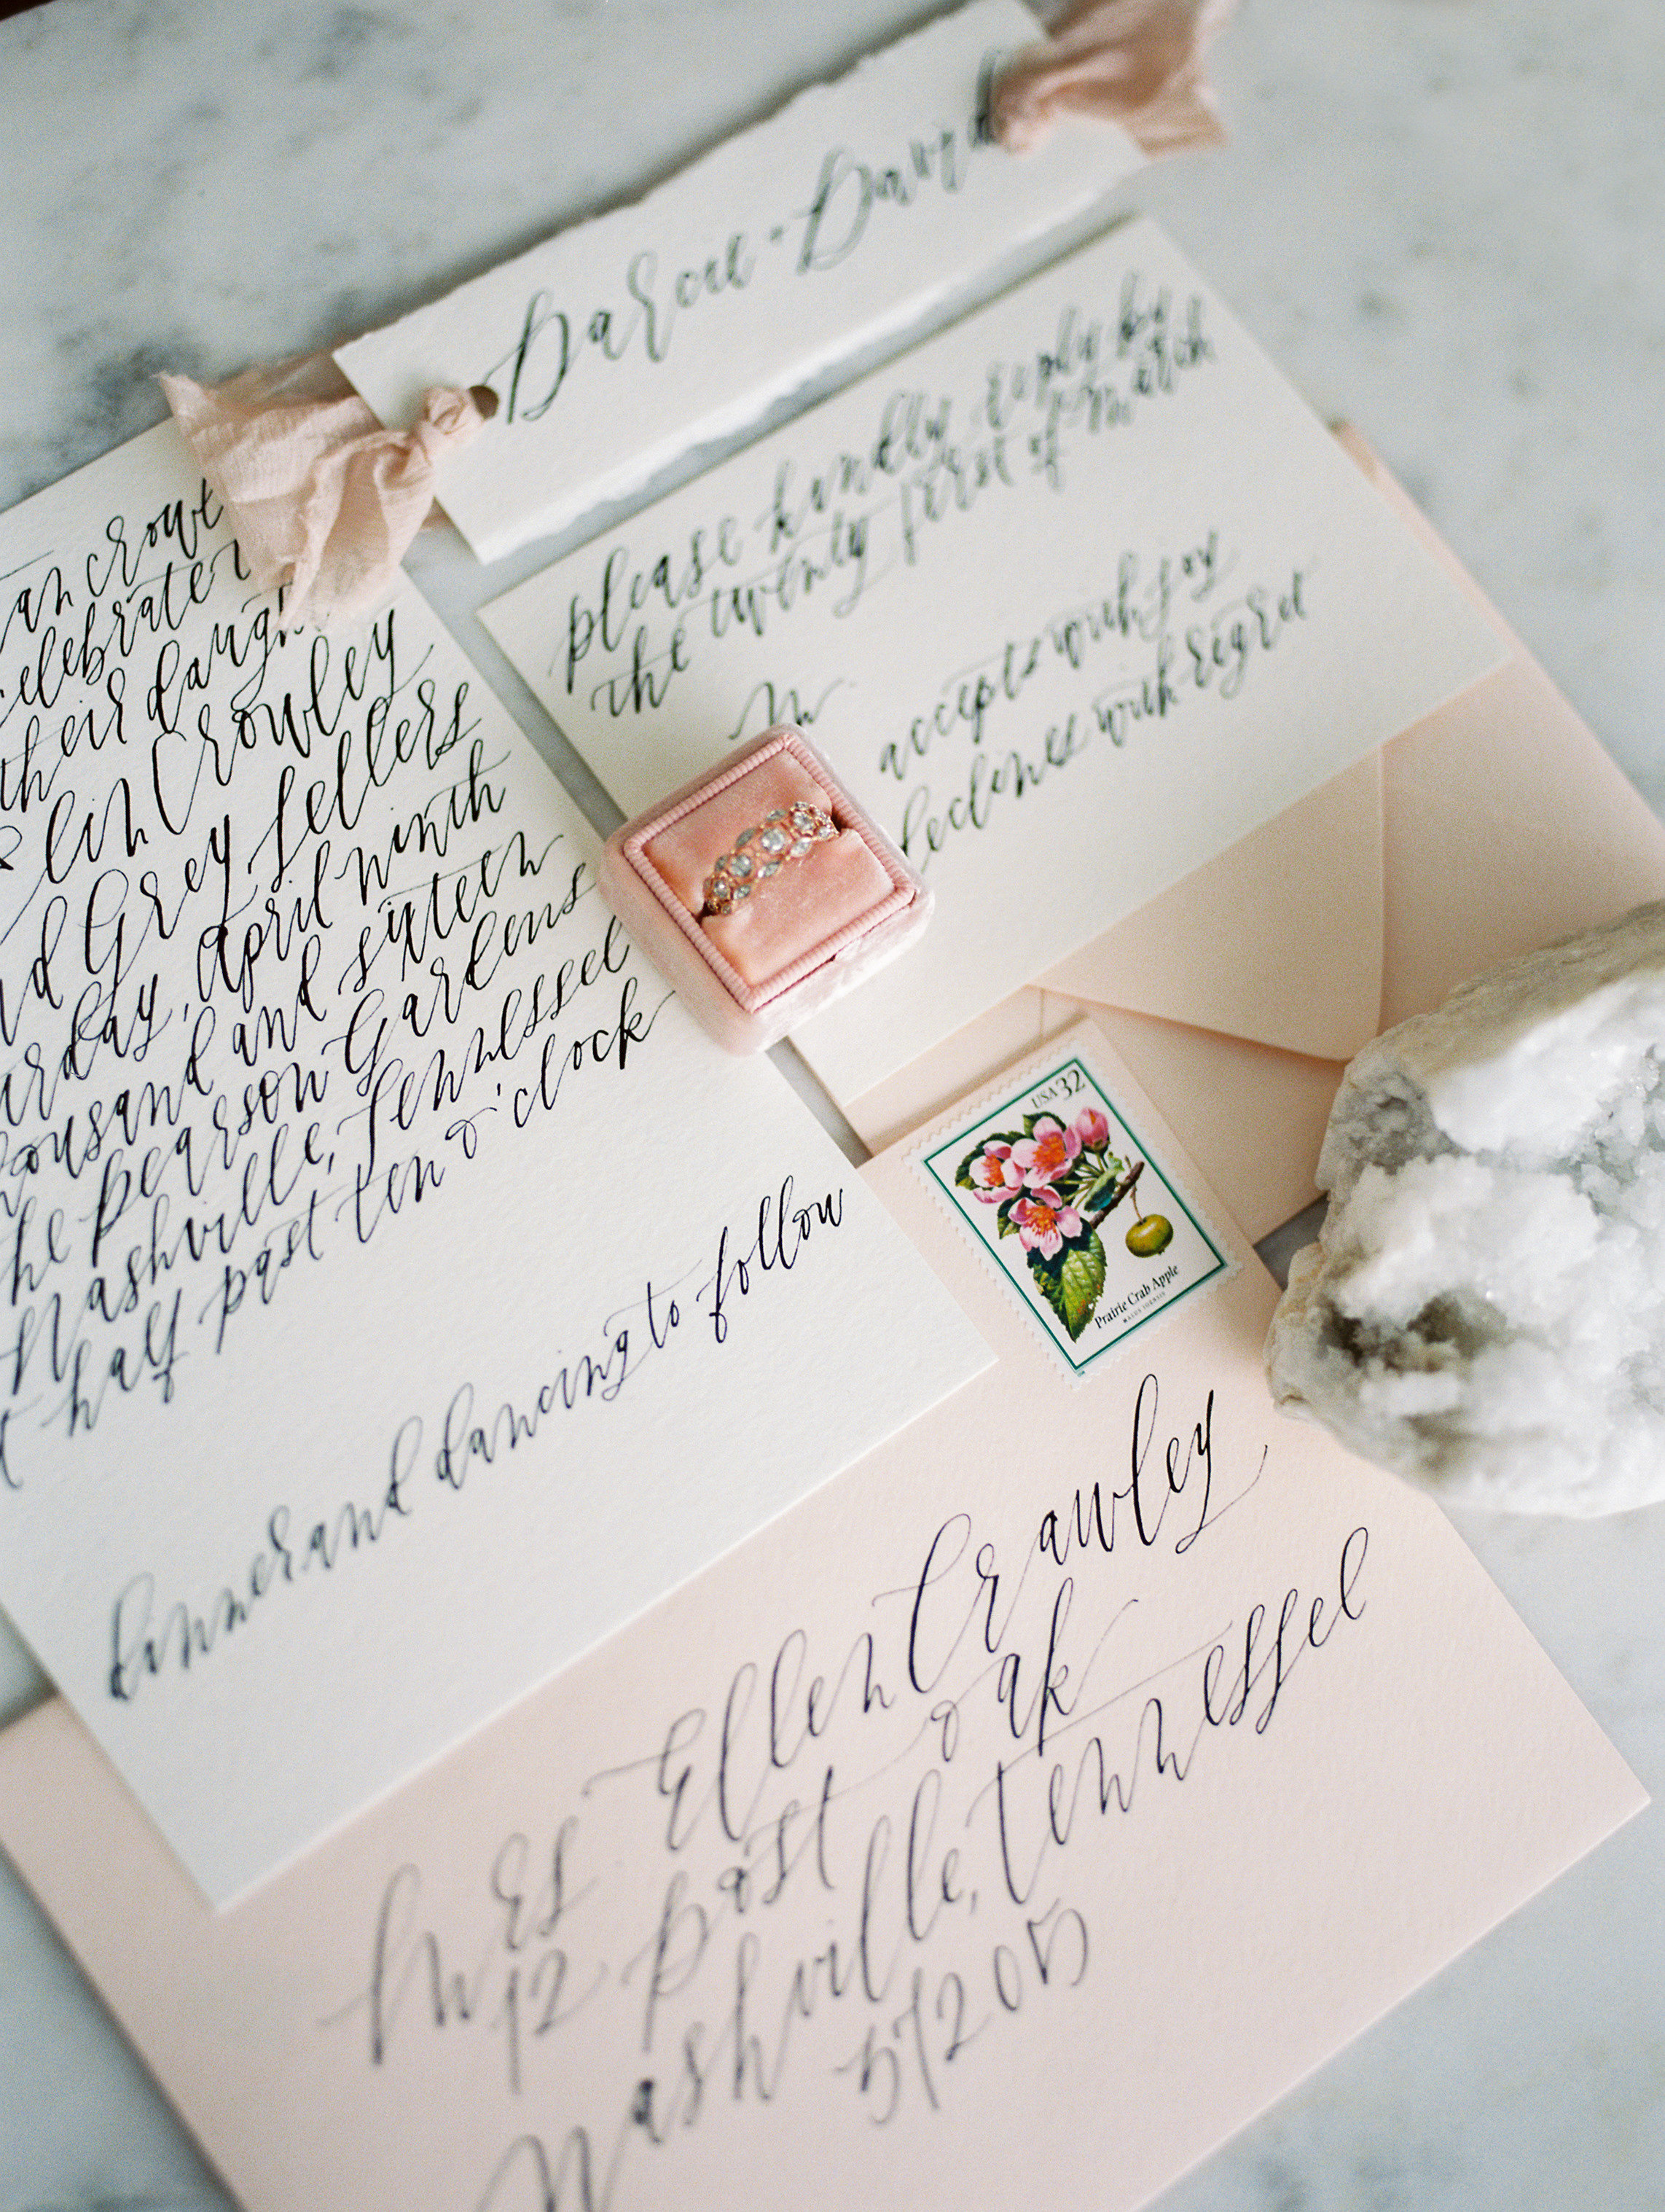 Darcie + David
please kindly reply by
the twenty first of March
M
accepts with joy
declines with regret
an crowl
celebrate
their daugh
lin Crowley
d Grey Sellers
urday, April ninth
housand and sixteen
he Pearson Gardens
Nashville, Tennessee
t half past ten o'clock
dinner and dancing to follow
USA 32
Prairie Crab Apple
Mrs Ellen Crawley
12 Post Oak
Nashville, Tennessee
37205